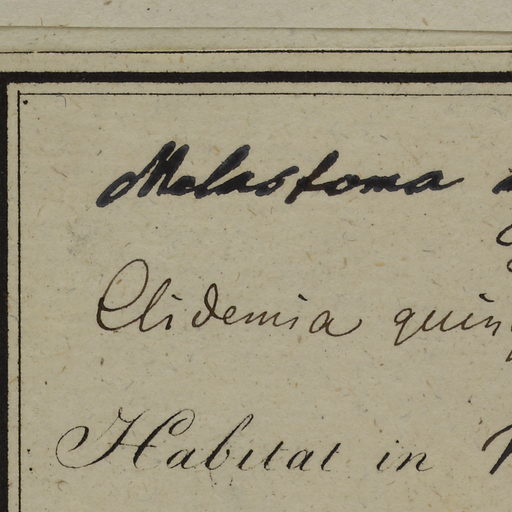 Melastoma
Clidemia
Habitat in